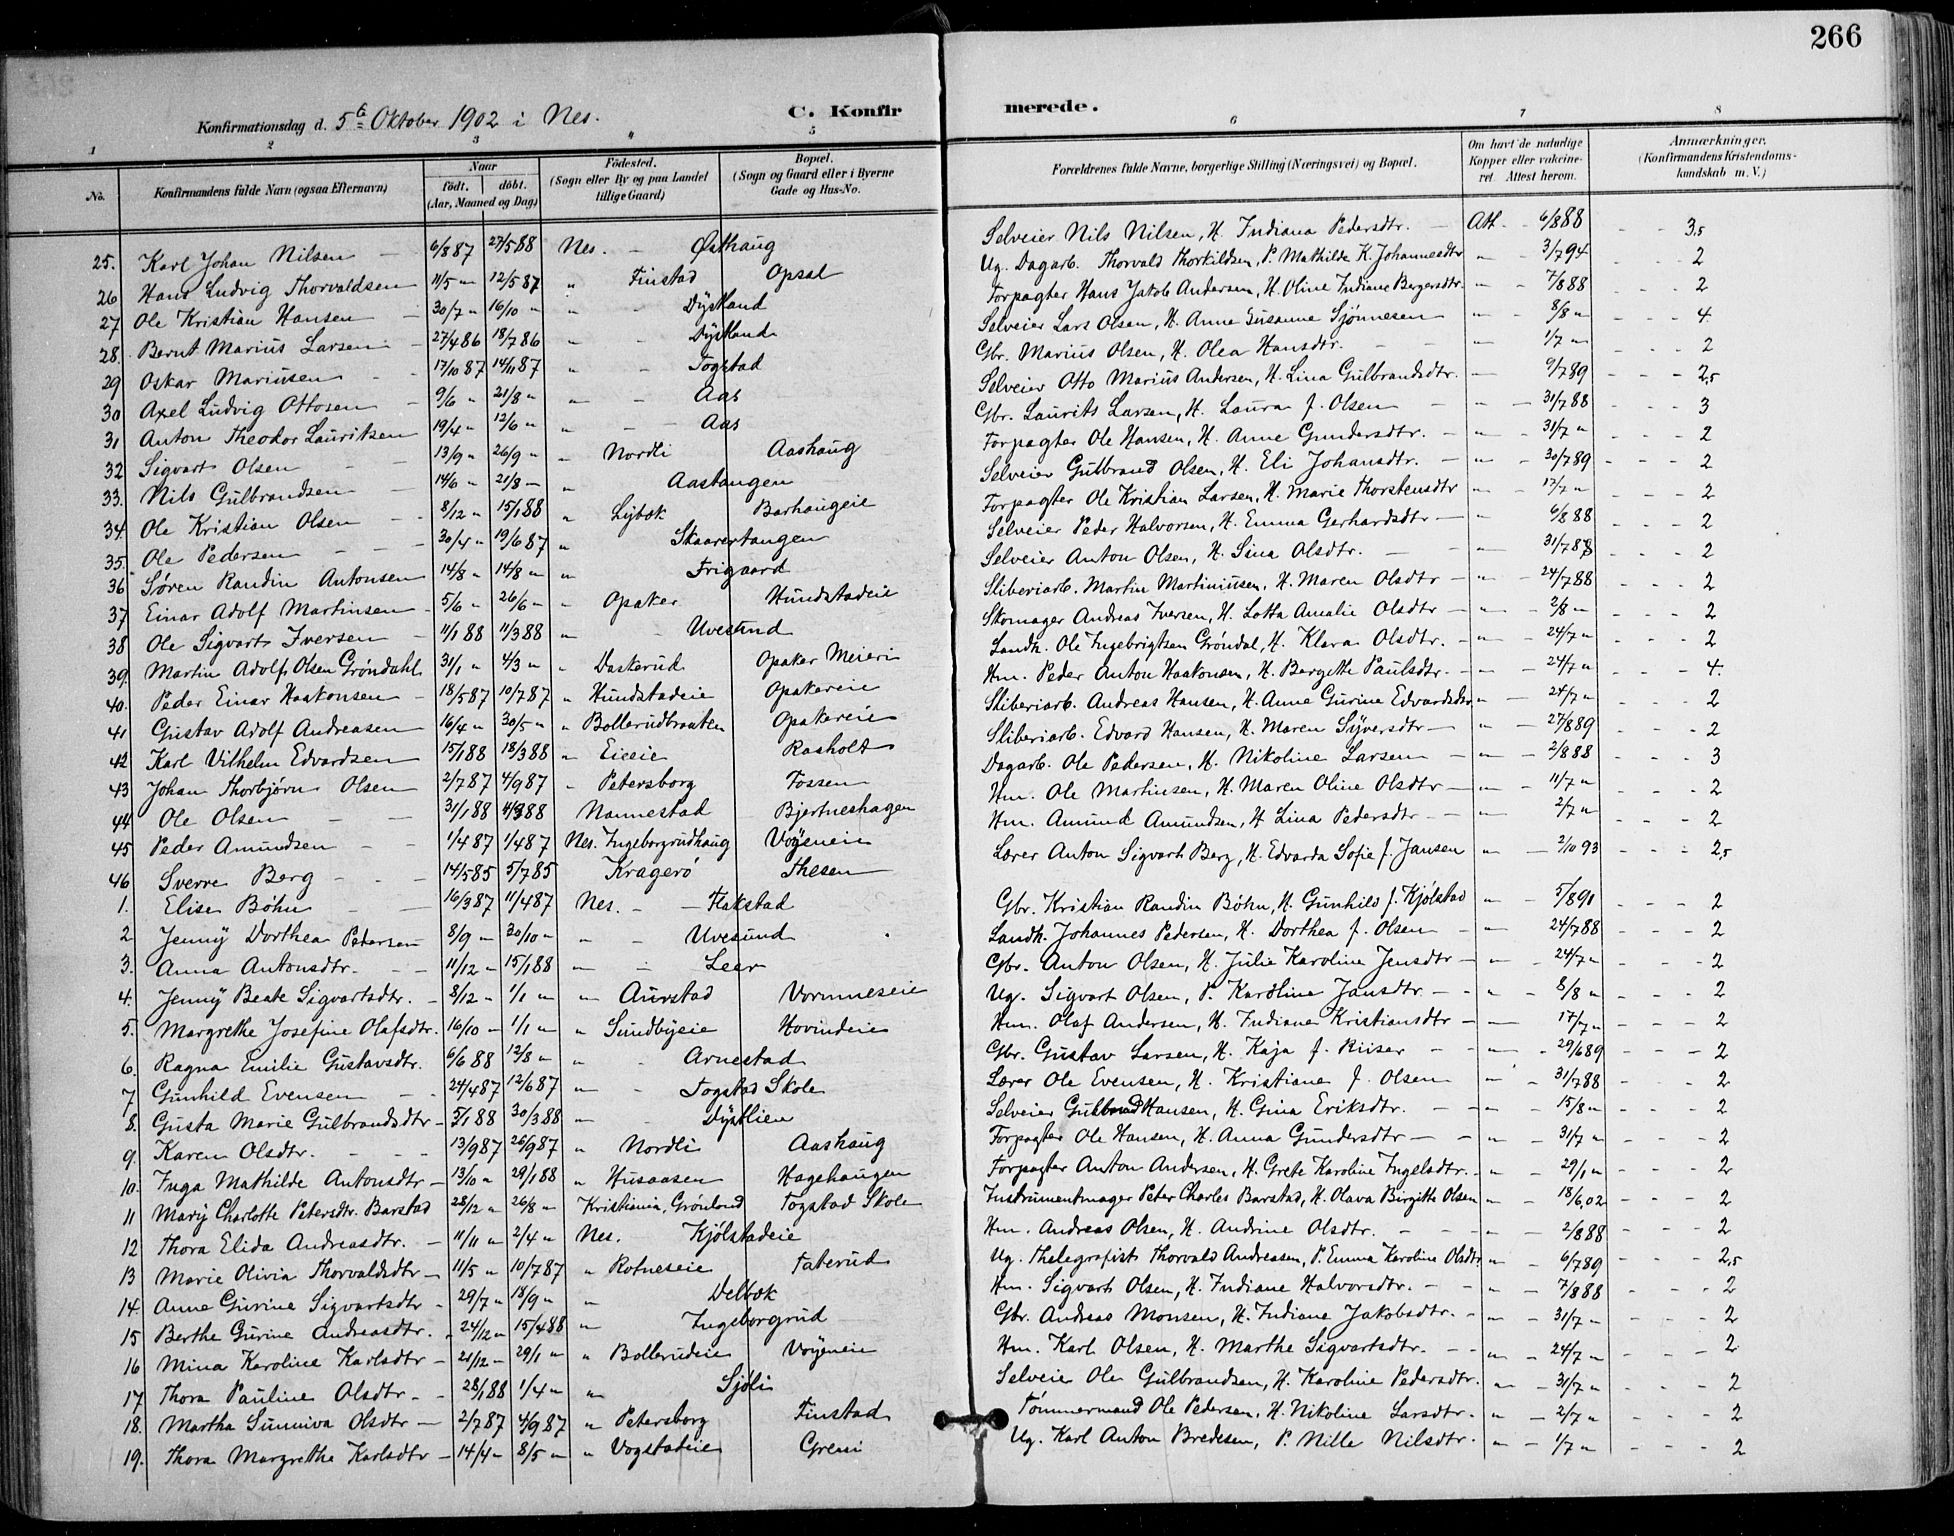 266
Konfirmationsdag d. 5te Oktober 1902 i Nes. C. Konfirmerede.
1 2 3 4 5 6 7 8
No. Konfirmandens fulde Navn (ogsaa Efternavn) Naar født. døbt. (Aar, Maaned og Dag) Fødested. (Sogn eller By og paa Landet tillige Gaard) Bopæl. (Sogn og Gaard eller i Byerne Gade og Hus-No. Forældrenes fulde Navne, borgerlige Stilling (Næringsvei) og Bopæl. Om havt de naturlige Kopper eller vakcineret. Attest herom. Anmærkninger. (Konfirmandens Kristendomskundskab m. V.)
25. Karl Johan Nilsen 6/8 87 27/5 88 Nes. - Østhaug Selveier Nils Nilsen, H. Indiana Pedersdtr. Att. 6/8 88 3,5
26 Hans Ludvig Thorvaldsen 11/5 " 12/5 87 " Finstad Opsal Ug. Dagarb. Thorvald Thorkildsen, P. Mathilde K. Johannesdtr " 3/7 94 2
27 Ole Kristian Hansen 30/7 " 16/10 " " Dystland Forpagter Hans Jakob Andersen, H. Oline Indiane Bergersdtr. " 7/8 88 2
28. Bernt Marius Larsen 27/4 86 18/7 86 " Dystland Selveier Lars Olsen, H. Anne Susanne Sjønnesen " 8/8 " 4
29 Oskar Mariusen 17/10 87 14/11 87 " Togstad Gbr. Marius Olsen, H. Olea Hansdtr. " 1/7 " 2
30 Axel Ludvig Ottosen 9/6 " 21/8 " " Aas Selveier Otto Marius Andersen, H. Lina Gulbrandsdtr. " 9/7 89 2,5
31 Anton Theodor Lauritsen 19/4 " 12/6 " " Aas Gbr. Laurits Larsen, H. Laura f. Olsen " 31/7 88 3
32 Sigvart Olsen 13/9 " 26/9 " " Nordli Aashaug Forpagter Ole Hansen, H. Anne Gundersdtr. " 31/7 " 2
33. Nils Gulbrandsen 14/6 " 21/8 " " Aastangen Selveier Gulbrand Olsen, H. Eli Johansdtr. " 30/7 89 2
34. Ole Kristian Olsen 8/12 " 15/1 88 " Lybæk Barhaugeie Forpagter Ole Kristian Larsen, H. Marie Thorstensdtr " 17/7 " 2
35. Ole Pedersen 30/4 " 19/6 87 " Skaarertangen Selveier Peder Halvorsen, H. Emma Gerhardsdtr " 6/8 88 2
36 Søren Randin Antonsen 14/8 " 14/8 " " Frigaard Selveier Anton Olsen, H. Sina Olsdtr. " 31/7 88 2
37 Einar Adolf Martinsen 5/6 " 26/6 " " Opaker Hundstadeie Sliberiarb. Martin Martiniusen, H. Maren Olsdtr " 24/7 88 2
38 Ole Sigvart Iversen 11/1 88 11/3 88 " Uvesund Skomager Andreas Iversen, H. Lotta Amalie Olsdtr " 2/8 " 2
39. Martin Adolf Olsen Grøndahl 31/1 " 4/3 " " Daskerud Opaker Meieri Landh. Ole Ingebrigtsen Grøndal, H. Klara Olsdtr. " 24/7 " 2
40. Peder Einar Haakonsen 18/5 87 10/7 87 " Hundstadeie Opakereie Hm. Peder Anton Haakonsen, H. Bergette Paulsdtr. " 24/7 " 4.
41 Gustav Adolf Andreasen 16/4 " 30/5 " " Bollerudbraaten Opakereie Sliberiarb. Andreas Hansen, H. Anne Gurine Edvardsdtr " 24/7 " 2
42 Karl Vilhelm Edvardsen 15/1 88 18/3 88 " Eieeie Rasholt Sliberiarb. Edvard Hansen, H. Maren Syversdtr " 27/8 89 2
43 Johan Thorbjørn Olsen 2/7 87 4/9 87 " Petersborg Fossen Dagarb. Ole Pedersen, H. Nikoline Larsen " 2/8 88 3
44 Ole Olsen 31/1 88 4/3 88 Nannestad Bjertneshagen Hm. Ole Martinsen, H. Maren Oline Olsdtr " 11/7 " 2
45 Peder Amundsen 1/4 87 1/4 87 Nes. Ingeborgrudhaug Vøyeneie Hm. Amund Amundsen, H Lina Pedersdtr " 2/7 " 2
46 Sverre Berg 14/5 85 5/7 85 Kragerø Thesen Lærer Anton Sigvart Berg, H. Edvarda Sofie f. Jansen " 2/10 93 2,5
1. Elise Bøhn 16/3 87 11/4 87 Nes. - Flakstad Gbr. Kristian Randin Bøhn, H. Gunhild f. Kjølstad " 5/8 90 2
2 Jenny Dorthea Petersen 8/9 " 30/10 " " Uvesund Landh. Johannes Pedersen, H. Dorthea f. Olsen " 24/7 88 2
3. Anna Antonsdtr. 11/12 " 15/1 88 " Leer Gbr. Anton Olsen, H. Julie Karoline Jensdtr " 24/7 " 2
4. Jenny Beate Sigvartsdtr. 8/12 " 1/1 " " Aurstad Vormneseie Ug. Sigvart Olsen, P. Karoline Jansdtr " 8/8 " 2
5. Margrethe Josefine Olafsdtr. 16/10 " 1/1 " " Sundbyeie Hovindeie Hm. Olaf Andersen, H. Indiane Kristiansdtr " 17/7 " 2
6. Ragna Emilie Gustavsdtr. 6/6 88 12/8 " " Arnestad Gbr. Gustav Larsen, H. Kaja f. Riiser " 29/6 89 2
7 Gunhild Evensen 24/4 87 12/6 87 " Togstad Skole Lærer Ole Evensen, H. Kristiane f. Olsen " 31/7 88 2
8. Gusta Marie Gulbrandsdtr 5/1 88 30/3 88 " Dystlien Selveier Gulbrand Hansen, H. Gina Eriksdtr. " 15/8 " 2
9. Karen Olsdtr. 13/9 87 26/9 87 " Nordli Aashaug Forpagter Ole Hansen, H. Anna Gundersdtr " 31/7 " 2
10. Inga Mathilde Antonsdtr 13/10 " 29/1 88 " Husaasen Hagehaugen Forpagter Anton Andersen, H. Grete Karoline Ingelsdtr. " 29/1 " 2
11 Mary Charlotte Petersdtr. Barstad 28/12 " 26/8 " Kristiania, Grønland Togstad Skole Instrumentmager Peter Charles Barstad, H. Olava Birgitte Olsen " 18/6 02 2
12 Thora Elida Andreasdtr. 11/11 " 2/4 " Nes. Kjølstadeie Hm. Andreas Olsen, H. Andrine Olsdtr. " 2/8 88 2
13 Marie Olivia Thorvaldsdtr 11/5 " 10/7 87 " Rotneseie Taterud Ug. Thelegrafist Thorvald Andreasen, P. Emma Karoline Olsdtr " 6/7 89 2,5
14. Anne Gurine Sigvartsdtr 29/7 " 18/9 " " Delbæk Hm. Sigvart Olsen, H. Indiane Halvorsdtr. " 7/8 88 2
15 Berthe Gurine Andreasdtr. 24/12 " 15/4 88 " Ingeborgrud Gbr. Andreas Monsen, H. Indiane Jakobsdtr. " 31/7 " 2
16 Mina Karoline Karlsdtr 21/12 " 29/1 " " Bollerudeie Vøyeneie Hm. Karl Olsen, H. Marthe Sigvartsdtr. " 24/7 " 2
17 Thora Pauline Olsdtr 28/1 88 1/4 " " Sjøli Selveie Ole Gulbrandsen, H. Karoline Pedersdtr. " 31/7 " 2
18. Martha Sunniva Olsdtr 2/7 87 4/9 87 " Petersborg Finstad Tømmermand Ole Pedersen, H. Nikoline Larsdtr. " 2/7 " 2
19. Thora Margrethe Karlsdtr 14/4 " 8/5 " " Vogstadeie Greni Ug. Karl Anton Bredesen, P. Nille Nilsdtr. " 1/7 " 2